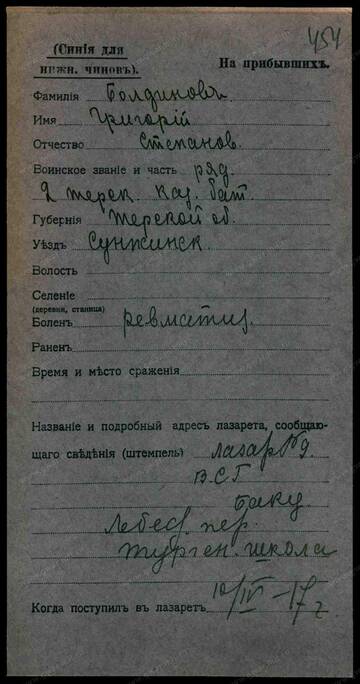 454
(Синія для
нижн. чиновъ).
На прибывшихъ.
Фамилія Болдиновъ
Имя Григорій
Отчество Степанов.
Воинское званіе и часть ряд.
2 терск. каз. бат.
Губернія Терской об.
Уѣздъ Сунжинск
Волость
Селеніе
(деревня, станица)
Боленъ ревматиз.
Раненъ
Время и мѣсто сраженія
Названіе и подробный адресъ лазарета, сообщаю-
щаго свѣдѣнія (штемпель) лазар № 9.
В.С.Г.
Баку
Лебед. пер.
Турген. школа
Когда поступилъ въ лазаретъ 10/IV - 17 г